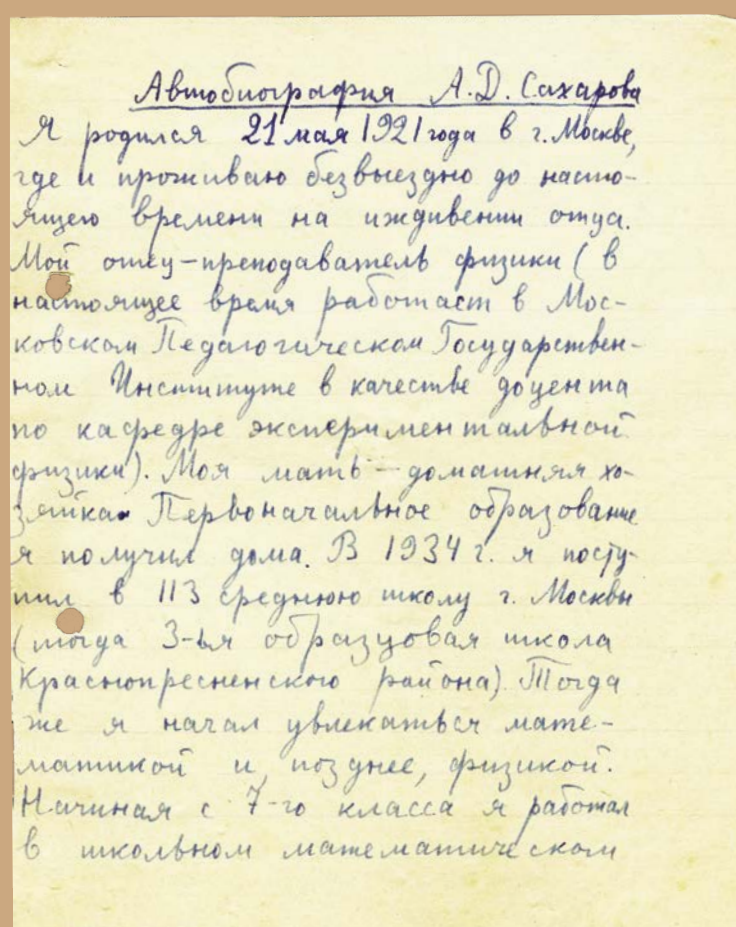 Автобиография А.Д. Сахарова
Я родился 21 мая 1921 года в г. Москве,
где и проживаю безвыездно до насто-
ящего времени на иждивении отца.
Мой отец – преподаватель физики (в
настоящее время работает в Мос-
ковском Педагогическом Государствен-
ном Институте в качестве доцента
по кафедре экспериментальной
физики). Моя мать – домашняя хо-
зяйка. Первоначальное образование
я получил дома. В 1934 г. я посту-
пил в 113 среднюю школу г. Москвы
(тогда 3-ья образцовая школа
Краснопресненского района). Тогда
же я начал увлекаться мате-
матикой и, позднее, физикой.
Начиная с 7-го класса я работал
в школьном математическом